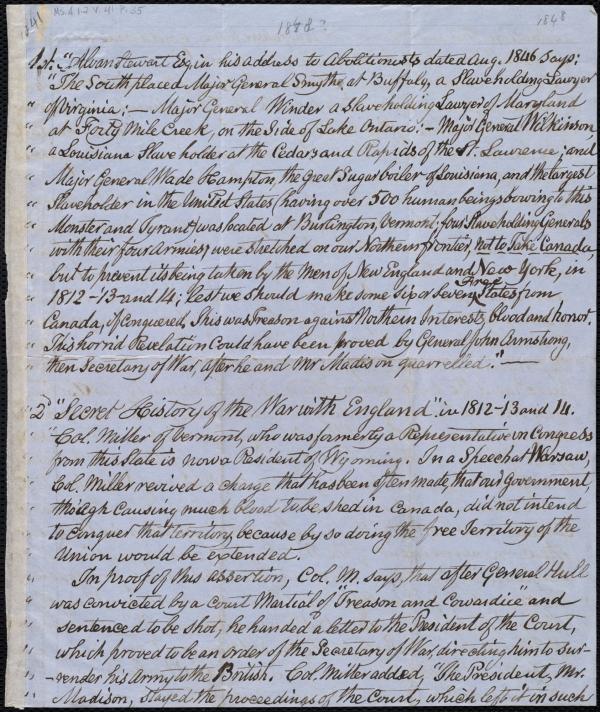 1841 Ms. A.1.2 V. 41 P. 35
1848?
1848
1st. "Alvan Stewart Esq. in his address to Abolitionists dated Aug. 1846 says:
" "The South placed Major General Smythe, at Buffalo, a Slaveholding Lawyer
" of Virginia; — Major General Winder a Slaveholding Lawyer of Maryland
" at Forty Mile Creek, on the Side of Lake Ontario: — Major General Wilkinson,
" a Louisiana Slaveholder at the Cedars and Rapids of the St. Lawrence; and
" Major General Wade Hampton, the great Sugar boiler of Louisiana, and the largest
" Slaveholder in the United States (having over 500 human beings bowing to this
" Monster and Tyrant) was located at Burlington, Vermont, four Slaveholding Generals
" with their four Armies, were stretched on our Northern frontier, not to take Canada,
" but to prevent its being taken by the Men of New England and New York, in
" 1812-'13 and 14; lest we should make some six or seven Free States from
" Canada, if conquered. This was Treason against Northern Interests, blood and honor.
" This horrid Revelation Could have been proved by General John Armstrong,
" then Secretary of War, after he and Mr Madison quarrelled." —
2d "Secret History of the War with England" in 1812-'13 and 14.
" "Col. Miller of Vermont, who was formerly a Representative in Congress
" from this State is now a Resident of Wyoming. In a Speech at Warsaw,
" Col. Miller revived a charge that has been often made, that our Government,
" though Causing much blood to be shed in Canada, did not intend
" to conquer that territory, because by so doing the free Territory of the
" Union would be extended.
" In proof of this assertion, Col. M. says, that after General Hull
" was convicted by a Court Martial of Treason and Cowardice" and
" sentenced to be shot, he handed a letter to the President of the Court,
" which proved to be an order of the Secretary of War, directing him to sur-
" -render his Army to the British. Col. Miller added, "The President, Mr.
" Madison, stayed the proceedings of the Court, which left it in such